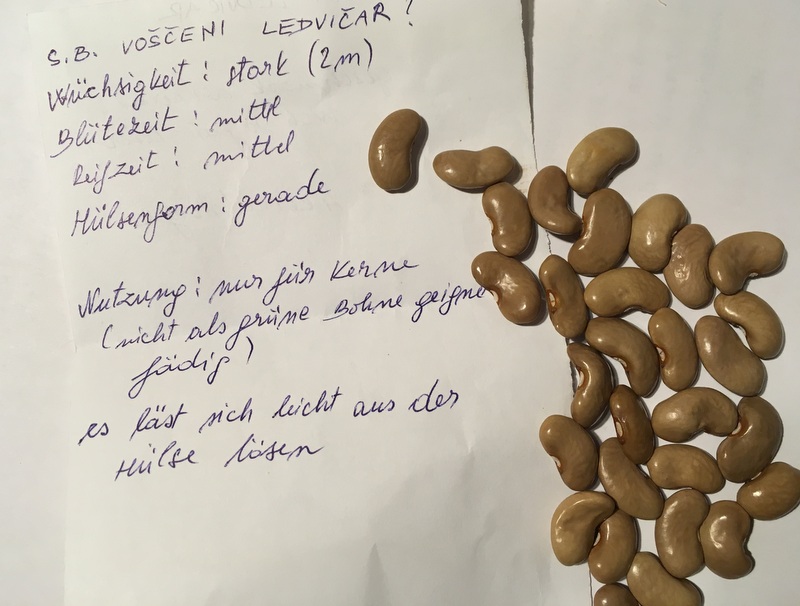 S.B. VOŠČENI LEDVIČAR?
Wüchsigkeit: stark (2m)
Blütezeit: mittel
Reifzeit: mittel
Hülsenform: gerade
Nutzung: nur für Kerne
(nicht als grüne Bohne geigne
fädig)
es läst sich leicht aus der
Hülse lösen